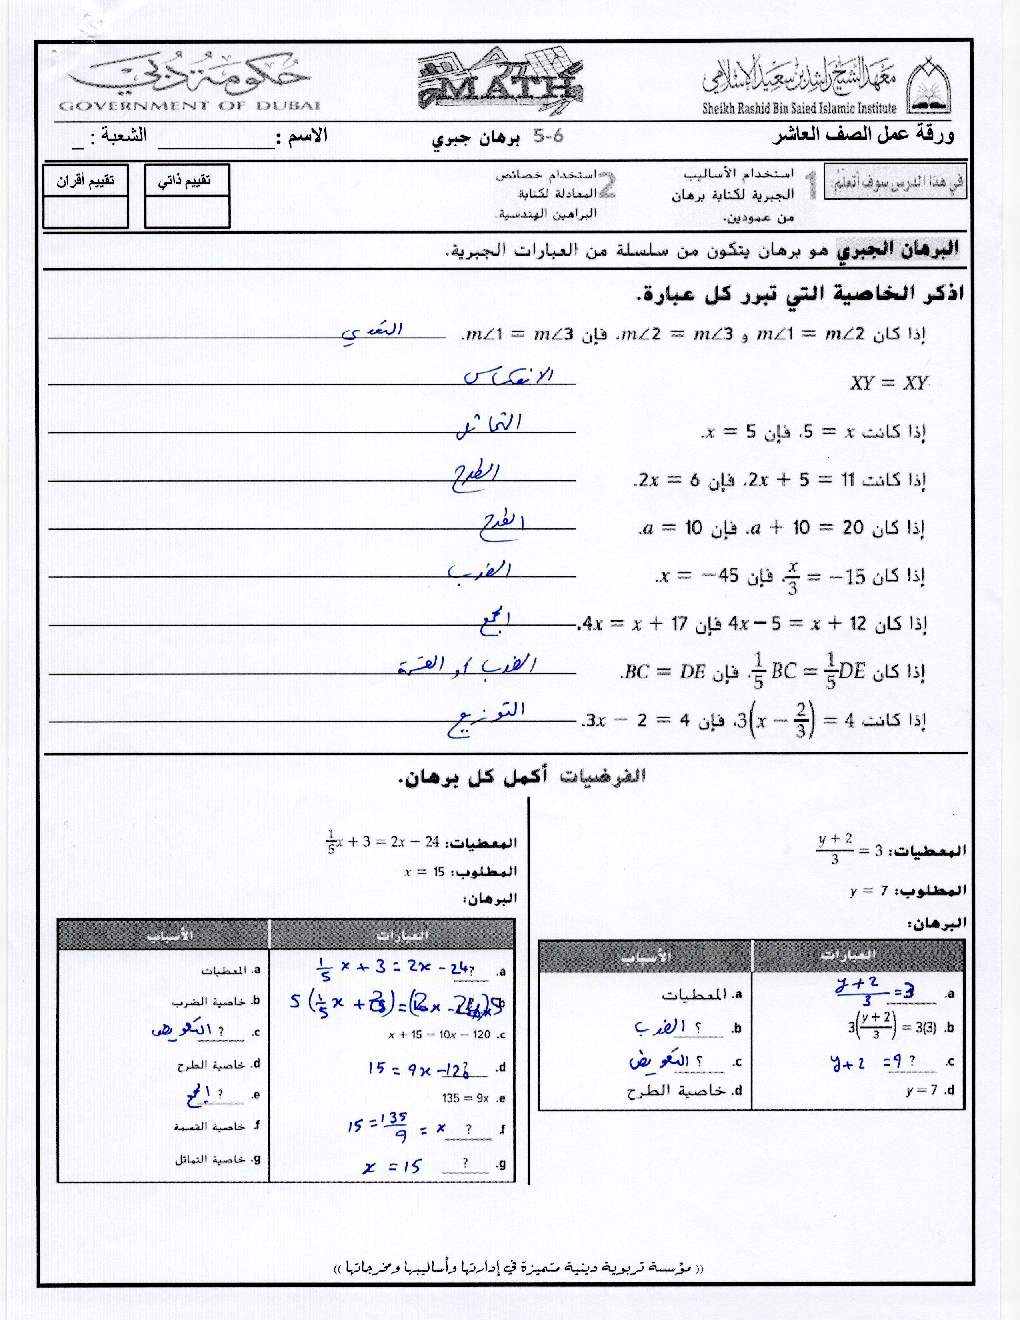 حكومة دبي
GOVERNMENT OF DUBAI
MATH
معهد الشيخ راشد بن سعيد الإسلامي
Sheikh Rashid Bin Saied Islamic Institute
ورقة عمل الصف العاشر 5-6 برهان جبري الاسم : ____________ الشعبة : _
في هذا الدرس سوف أتعلم:
1 استخدام الأساليب الجبرية لكتابة برهان من عمودين.
2 استخدام خصائص المعادلة لكتابة البراهين الهندسية.
تقييم ذاتي
تقييم أقران
البرهان الجبري هو برهان يتكون من سلسلة من العبارات الجبرية.
اذكر الخاصية التي تبرر كل عبارة.
إذا كان m∠1 = m∠2 و m∠2 = m∠3، فإن m∠1 = m∠3. التعدي
XY = XY الانعكاس
إذا كانت 5 = x، فإن x = 5. التماثل
إذا كانت 2x + 5 = 11، فإن 2x = 6. الطرح
إذا كان a + 10 = 20، فإن a = 10. الطرح
إذا كان x/3 = −15، فإن x = −45. الضرب
إذا كان 4x − 5 = x + 12 فإن 4x = x + 17. الجمع
إذا كان 1/5 BC = 1/5 DE، فإن BC = DE. الضرب أو القسمة
إذا كانت 3(x − 2/3) = 4، فإن 3x − 2 = 4. التوزيع
الفرضيات أكمل كل برهان.
المعطيات: (y + 2)/3 = 3
المطلوب: y = 7
البرهان:
العبارات الأسباب
a. (y+2)/3 = 3 a. المعطيات
b. 3((y + 2)/3) = 3(3) b. ؟ الضرب
c. y+2 = 9 ? c. ؟ التعويض
d. y = 7 d. خاصية الطرح
المعطيات: 1/5 x + 3 = 2x − 24
المطلوب: x = 15
البرهان:
العبارات الأسباب
a. 1/5 x + 3 = 2x − 24 ? a. المعطيات
b. خاصية الضرب
c. x + 15 = 10x − 120 c. ؟ التعويض
d. 15 = 9x − 120 d. خاصية الطرح
e. 135 = 9x e. ؟ الجمع
f. 15 = 135/9 = x ? f. خاصية القسمة
g. x = 15 ? g. خاصية التماثل
(( مؤسسة تربوية دينية متميزة في إدارتها وأساليبها ومخرجاتها ))